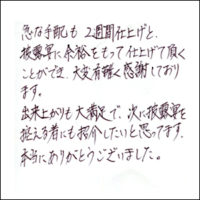 急な手配も2週間仕上げと、
披露宴に余裕をもって仕上げて頂く
ことができ、大変有難く感謝しており
ます。
出来上がりも大満足で、次に披露宴を
控える者にも紹介したいと思ってます。
本当にありがとうございました。